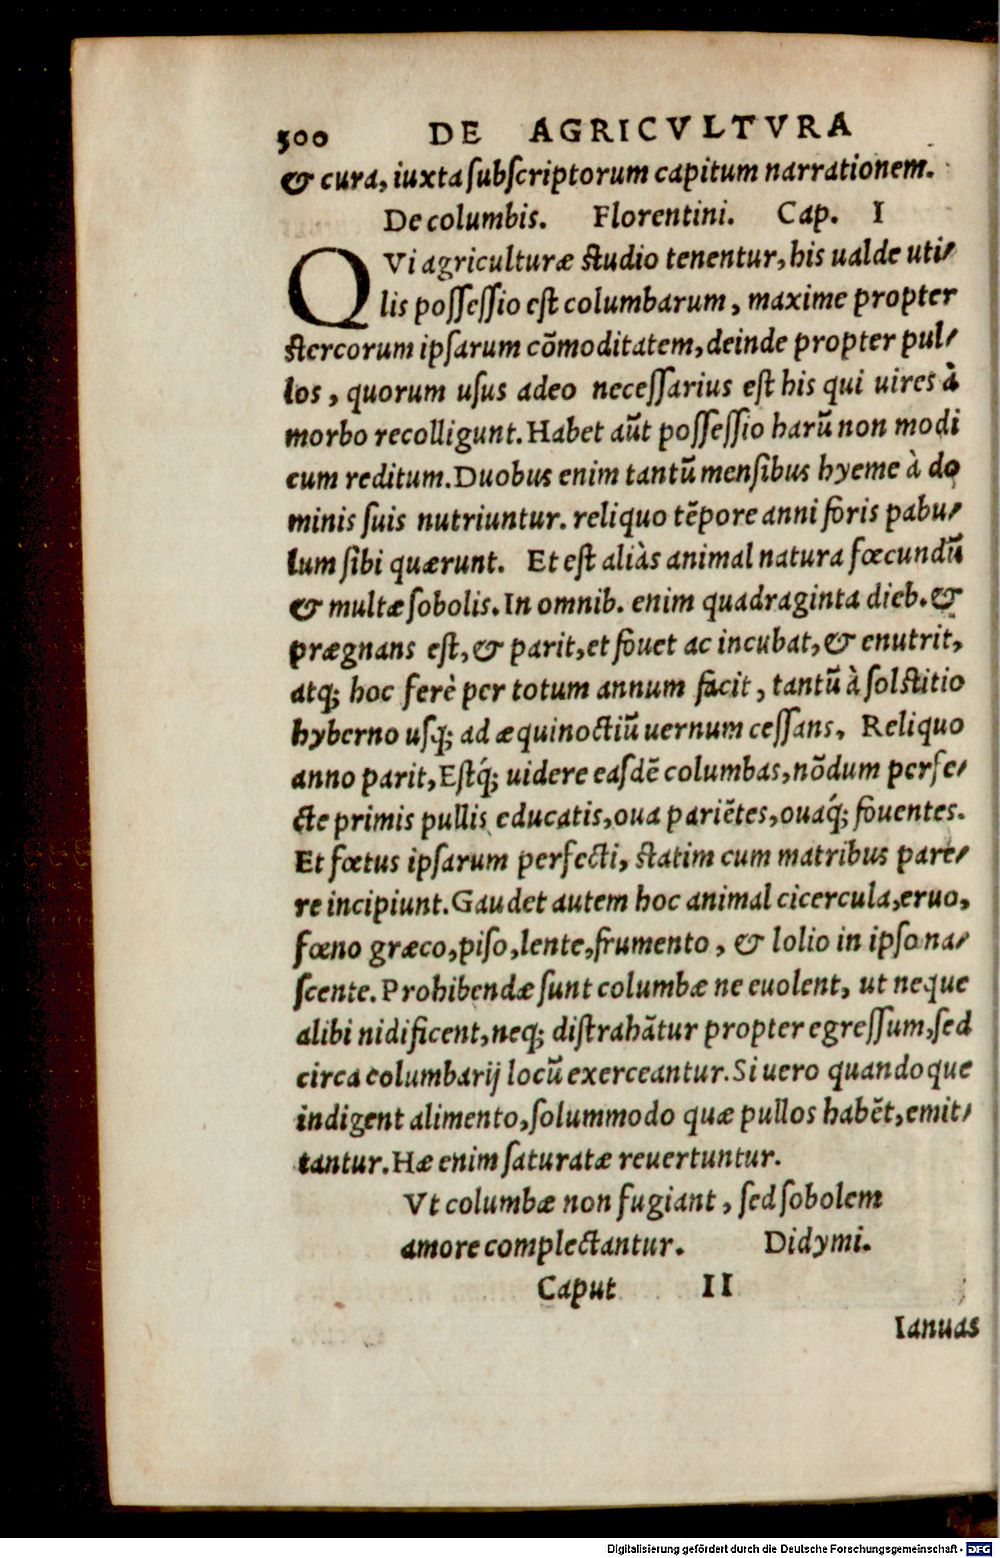 500 DE AGRICVLTVRA
& cura, iuxta subscriptorum capitum narrationem.
De columbis. Florentini. Cap. I
QVi agriculturæ studio tenentur, his ualde uti-
lis possessio est columbarum, maxime propter
stercorum ipsarum cõmoditatem, deinde propter pul-
los, quorum usus adeo necessarius est his qui uires à
morbo recolligunt. Habet aũt possessio harũ non modi
cum reditum. Duobus enim tantũ mensibus hyeme à do
minis suis nutriuntur. reliquo tẽpore anni foris pabu-
lum sibi quærunt. Et est aliàs animal natura fœcundũ
& multæ sobolis. In omnib. enim quadraginta dieb. &
prægnans est, & parit, et fouet ac incubat, & enutrit,
atq; hoc ferè per totum annum facit, tantũ à solstitio
hyberno usq; ad æquinoctiũ uernum cessans. Reliquo
anno parit, Estq́; uidere easdẽ columbas, nõdum perfe-
cte primis pullis educatis, oua pariẽtes, ouaq́; fouentes.
Et fœtus ipsarum perfecti, statim cum matribus pare-
re incipiunt. Gaudet autem hoc animal cicercula, eruo,
fœno græco, piso, lente, frumento, & lolio in ipso na-
scente. Prohibendæ sunt columbæ ne euolent, ut neque
alibi nidificent, neq; distrahãtur propter egressum, sed
circa columbarij locũ exerceantur. Si uero quandoque
indigent alimento, solummodo quæ pullos habẽt, emit-
tantur. Hæ enim saturatæ reuertuntur.
Vt columbæ non fugiant, sed sobolem
amore complectantur. Didymi.
Caput II
Ianuas
Digitalisierung gefördert durch die Deutsche Forschungsgemeinschaft - DFG